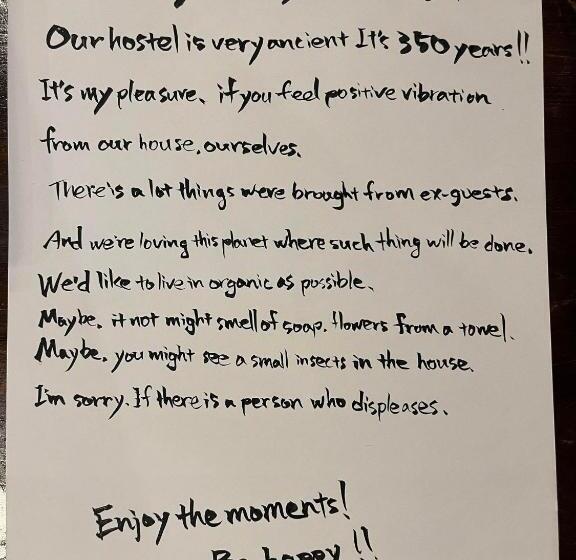 Our hostel is very ancient It's 350 years!!
It's my pleasure、if you feel positive vibration
from our house, ourselves、
There's a lot things were brought from ex-guests.
And we're loving this planet where such thing will be done.
We'd like to live in organic as possible、
Maybe, it not might smell of soap, flowers from a towel.
Maybe, you might see a small insects in the house.
I'm sorry. If there is a person who displeases、
Enjoy the moments!
Be happy!!